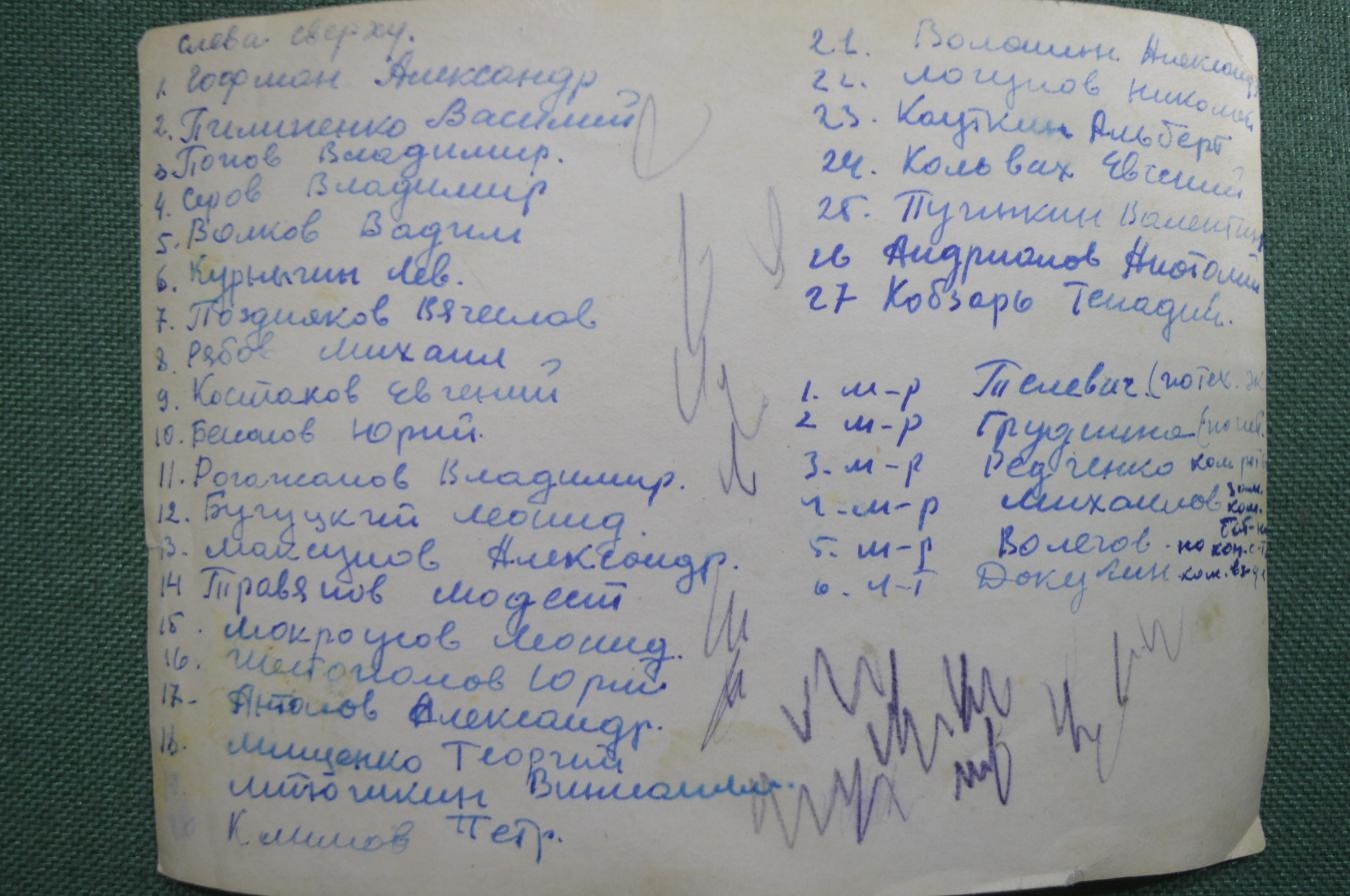 слева сверху.
1. Гофман Александр
2. Пилипенко Василий
3. Попов Владимир.
4. Серов Владимир
5. Волков Вадим
6. Курыгин Лев.
7. Поздняков Вячеслав
8. Рябов Михаил
9. Костаков Евгений
10. Юрий.
11. Рогожанов Владимир.
12. Бугуцкий Леонид
13. Максимов Александр.
14 Травянов Модест
15. Мокроусов Леонид.
16. Юрий
17. Антонов Александр.
18. Мищенко Георгий
Митюшкин Виниамин.
Климов Петр.
21. Волошин Александр
22. Логунов Николай
23. Кауткин Альберт
24. Кольвах Евгений
25. Пугинкин Валентин
26 Андрианов Анатолий
27 Кобзарь Генадий.
1. м-р Телевич. (потех.
2 м-р Грудинина
3. м-р Редченко
4. м-р Михайлов зам. ком.
5. м-р Волегов
6. Л-Т Докучин